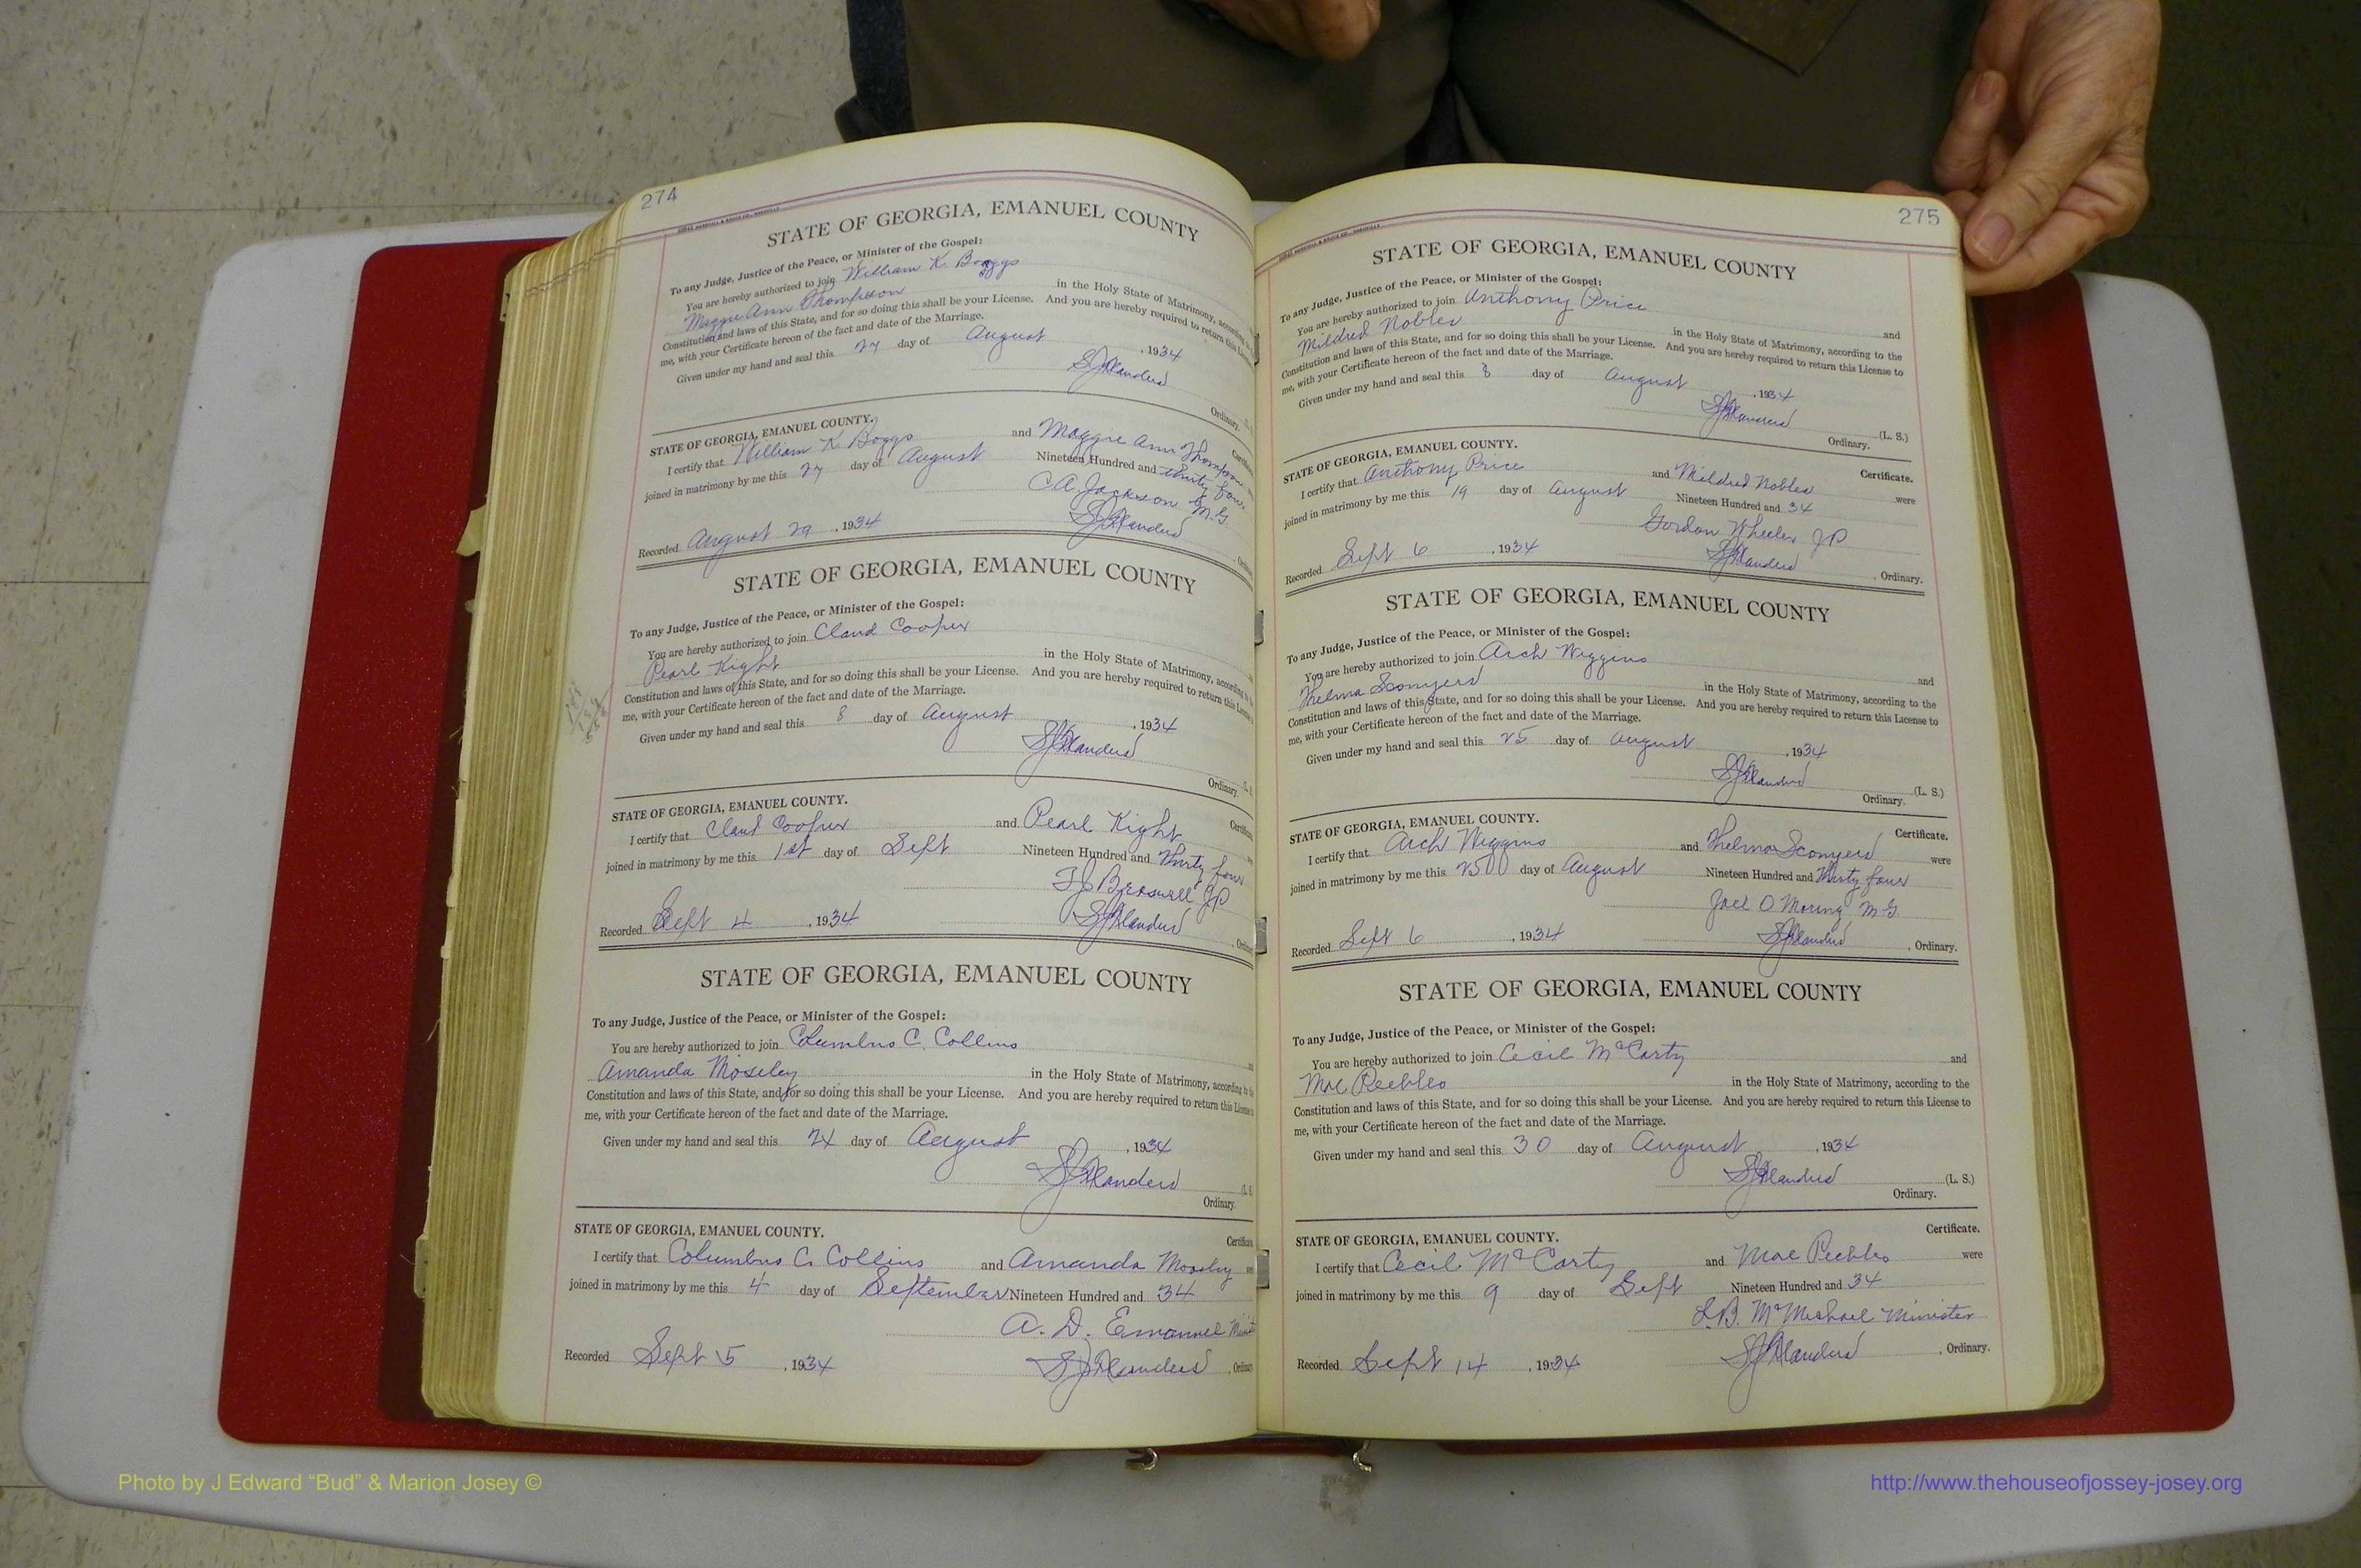 274
STATE OF GEORGIA, EMANUEL COUNTY
To any Judge, Justice of the Peace, or Minister of the Gospel:
You are hereby authorized to join William K. Boggs
Maggie Ann Thompson in the Holy State of Matrimony, according
Constitution and laws of this State, and for so doing this shall be your License. And you are hereby required to return this
me, with your Certificate hereon of the fact and date of the Marriage.
Given under my hand and seal this 27 day of August , 1934
S J Flanders
Ordinary.
STATE OF GEORGIA, EMANUEL COUNTY.
I certify that William K. Boggs and Maggie Ann Thompson
joined in matrimony by me this 27 day of August Nineteen Hundred and thirty four
C. A. Jackson M.G.
Recorded August 29 , 1934 S J Flanders
STATE OF GEORGIA, EMANUEL COUNTY
To any Judge, Justice of the Peace, or Minister of the Gospel:
You are hereby authorized to join Claud Cooper
Pearl Kight in the Holy State of Matrimony, according
Constitution and laws of this State, and for so doing this shall be your License. And you are hereby required to return this License
me, with your Certificate hereon of the fact and date of the Marriage.
Given under my hand and seal this 8 day of August , 1934
S J Flanders
Ordinary.
STATE OF GEORGIA, EMANUEL COUNTY.
I certify that Claud Cooper and Pearl Kight
joined in matrimony by me this 1st day of Sept Nineteen Hundred and Thirty four
Braswell JP
Recorded Sept 4 , 1934 S J Flanders
STATE OF GEORGIA, EMANUEL COUNTY
To any Judge, Justice of the Peace, or Minister of the Gospel:
You are hereby authorized to join Columbus C. Collins
Amanda Moseley in the Holy State of Matrimony, according
Constitution and laws of this State, and for so doing this shall be your License. And you are hereby required to return this License
me, with your Certificate hereon of the fact and date of the Marriage.
Given under my hand and seal this 24 day of August , 1934
S J Flanders
Ordinary.
STATE OF GEORGIA, EMANUEL COUNTY.
I certify that Columbus C. Collins and Amanda Mosley
joined in matrimony by me this 4 day of September Nineteen Hundred and 34
A. D. Emanuel
Recorded Sept 5 , 1934 S J Flanders
275
STATE OF GEORGIA, EMANUEL COUNTY
To any Judge, Justice of the Peace, or Minister of the Gospel:
You are hereby authorized to join Anthony Price and
Mildred Nobles in the Holy State of Matrimony, according to the
Constitution and laws of this State, and for so doing this shall be your License. And you are hereby required to return this License to
me, with your Certificate hereon of the fact and date of the Marriage.
Given under my hand and seal this 8 day of August , 1934
S J Flanders (L. S.)
Ordinary.
STATE OF GEORGIA, EMANUEL COUNTY. Certificate.
I certify that Anthony Price and Mildred Nobles were
joined in matrimony by me this 19 day of August Nineteen Hundred and 34
Gordon Wheeler JP
Recorded Sept 6 , 1934 S J Flanders , Ordinary.
STATE OF GEORGIA, EMANUEL COUNTY
To any Judge, Justice of the Peace, or Minister of the Gospel:
You are hereby authorized to join Arch Wiggins and
Thelma Sconyers in the Holy State of Matrimony, according to the
Constitution and laws of this State, and for so doing this shall be your License. And you are hereby required to return this License to
me, with your Certificate hereon of the fact and date of the Marriage.
Given under my hand and seal this 25 day of August , 1934
S J Flanders (L. S.)
Ordinary.
STATE OF GEORGIA, EMANUEL COUNTY. Certificate.
I certify that Arch Wiggins and Thelma Sconyers were
joined in matrimony by me this 25 day of August Nineteen Hundred and Thirty four
Joel O Moring M G
Recorded Sept 6 , 1934 S J Flanders , Ordinary.
STATE OF GEORGIA, EMANUEL COUNTY
To any Judge, Justice of the Peace, or Minister of the Gospel:
You are hereby authorized to join Cecil McCarty and
Mae Peebles in the Holy State of Matrimony, according to the
Constitution and laws of this State, and for so doing this shall be your License. And you are hereby required to return this License to
me, with your Certificate hereon of the fact and date of the Marriage.
Given under my hand and seal this 30 day of August , 1934
S J Flanders (L. S.)
Ordinary.
STATE OF GEORGIA, EMANUEL COUNTY. Certificate.
I certify that Cecil McCarty and Mae Peebles were
joined in matrimony by me this 9 day of Sept Nineteen Hundred and 34
L.B. McMichael Minister
Recorded Sept 14 , 1934 S J Flanders , Ordinary.
Photo by J Edward “Bud” & Marion Josey ©
http://www.thehouseofjossey-josey.org